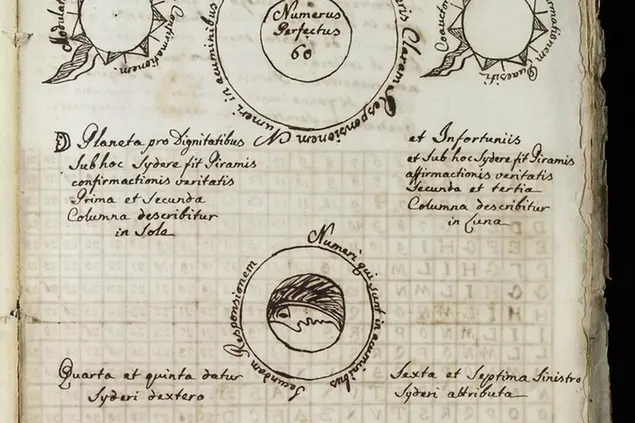 Modulat
Confirmationem.
Numeri in acuminibus
Numerus
Perfectus
60
eris Claram Responsionem
Coauctor
rmationem
Quaesiti
D Planeta pro Dignitatibus
Sub hoc Sydere fit Piramis
confirmactionis veritatis
Prima et Secunda
Columna describitur
in Sole
et Infortuniis
et Sub hoc Sydere fit Piramis
affirmactionis veritatis
Secunda et tertia
Columna describitur
in Luna
Numeri qui sunt in acuminibus
Secundam Responsionem
Quarta et quinta datur
Syderi dextero
Sexta et Septima Sinistro
Syderi attributa